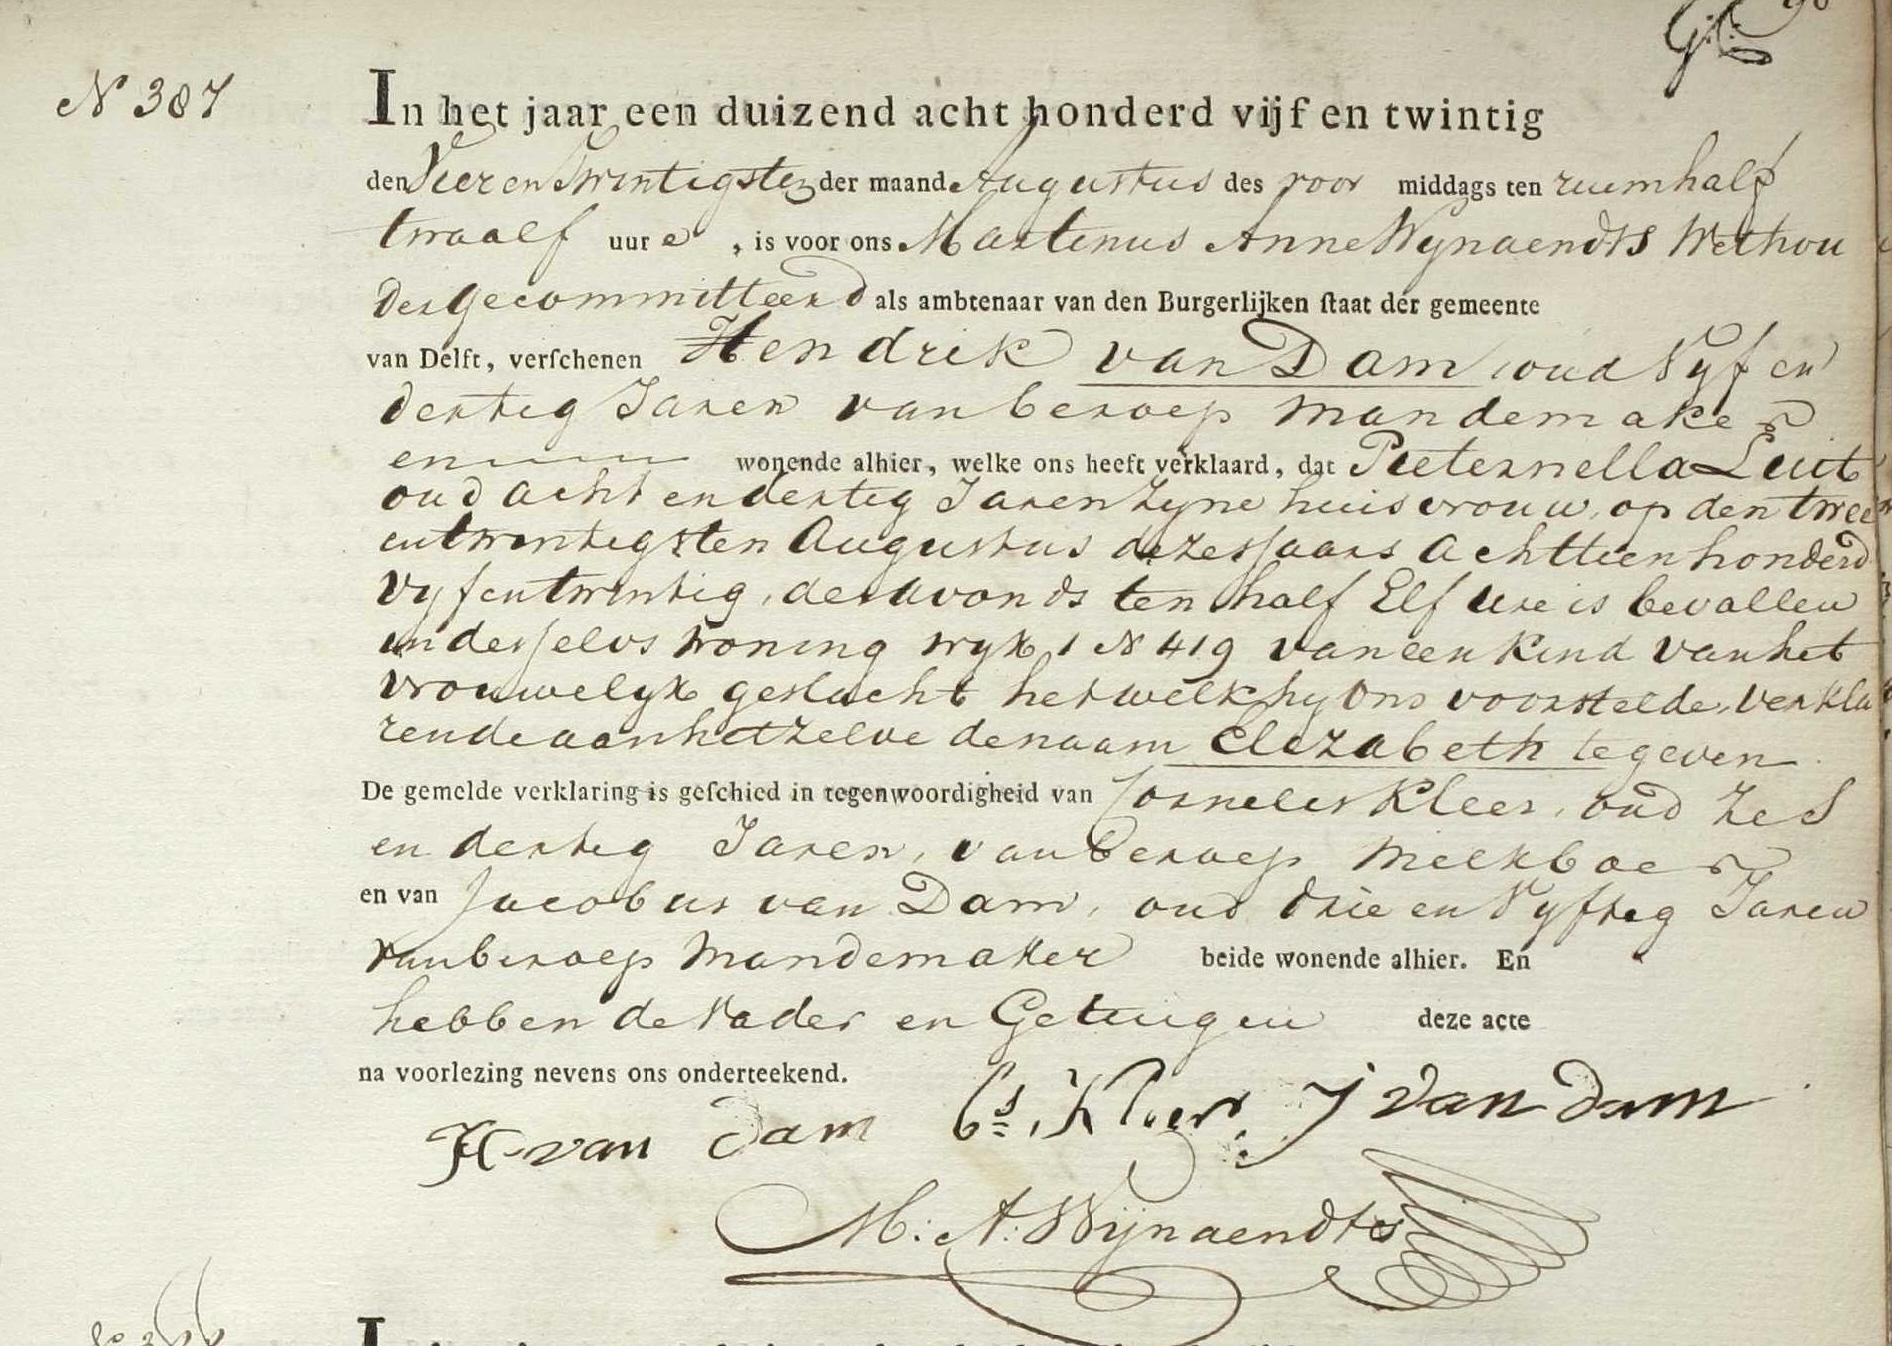 N 387
In het jaar een duizend acht honderd vijf en twintig
den Vier en Twintigsten der maand Augustus des voor middags ten ruim half
twaalf uure , is voor ons Martinus Anne Wynaendts Wethou
der Gecommitteerd als ambtenaar van den Burgerlijken ſtaat der gemeente
van Delft, verſchenen Hendrik van Dam oud Vyf en
dertig Jaren van beroep Mandemaker
en wonende alhier, welke ons heeft verklaard, dat Pieternella Luit
oud acht en dertig Jaren Zyne huisvrouw, op den twee
entwintigsten Augustus dezes Jaars Achttienhonderd
vyfentwintig, des avonds ten half Elf ure is bevallen
in derselvs woning wyk 1 N 419 van een Kind van het
vrouwelyk geslacht hetwelk hy ons voorstelde, verkla
rende aan hetzelve de naam Elizabeth te geven
De gemelde verklaring is geſchied in tegenwoordigheid van Cornelis Kleer, oud Zes
en dertig Jaren, van beroep Melkboer
en van Jacobus van Dam, oud drie en Vyftig Jaren
van beroep Mandemaker beide wonende alhier. En
hebben de Vader en Getuigen deze acte
na voorlezing nevens ons onderteekend.
H van Dam Cs. Kleer. J van Dam
M: A: Wijnaendts